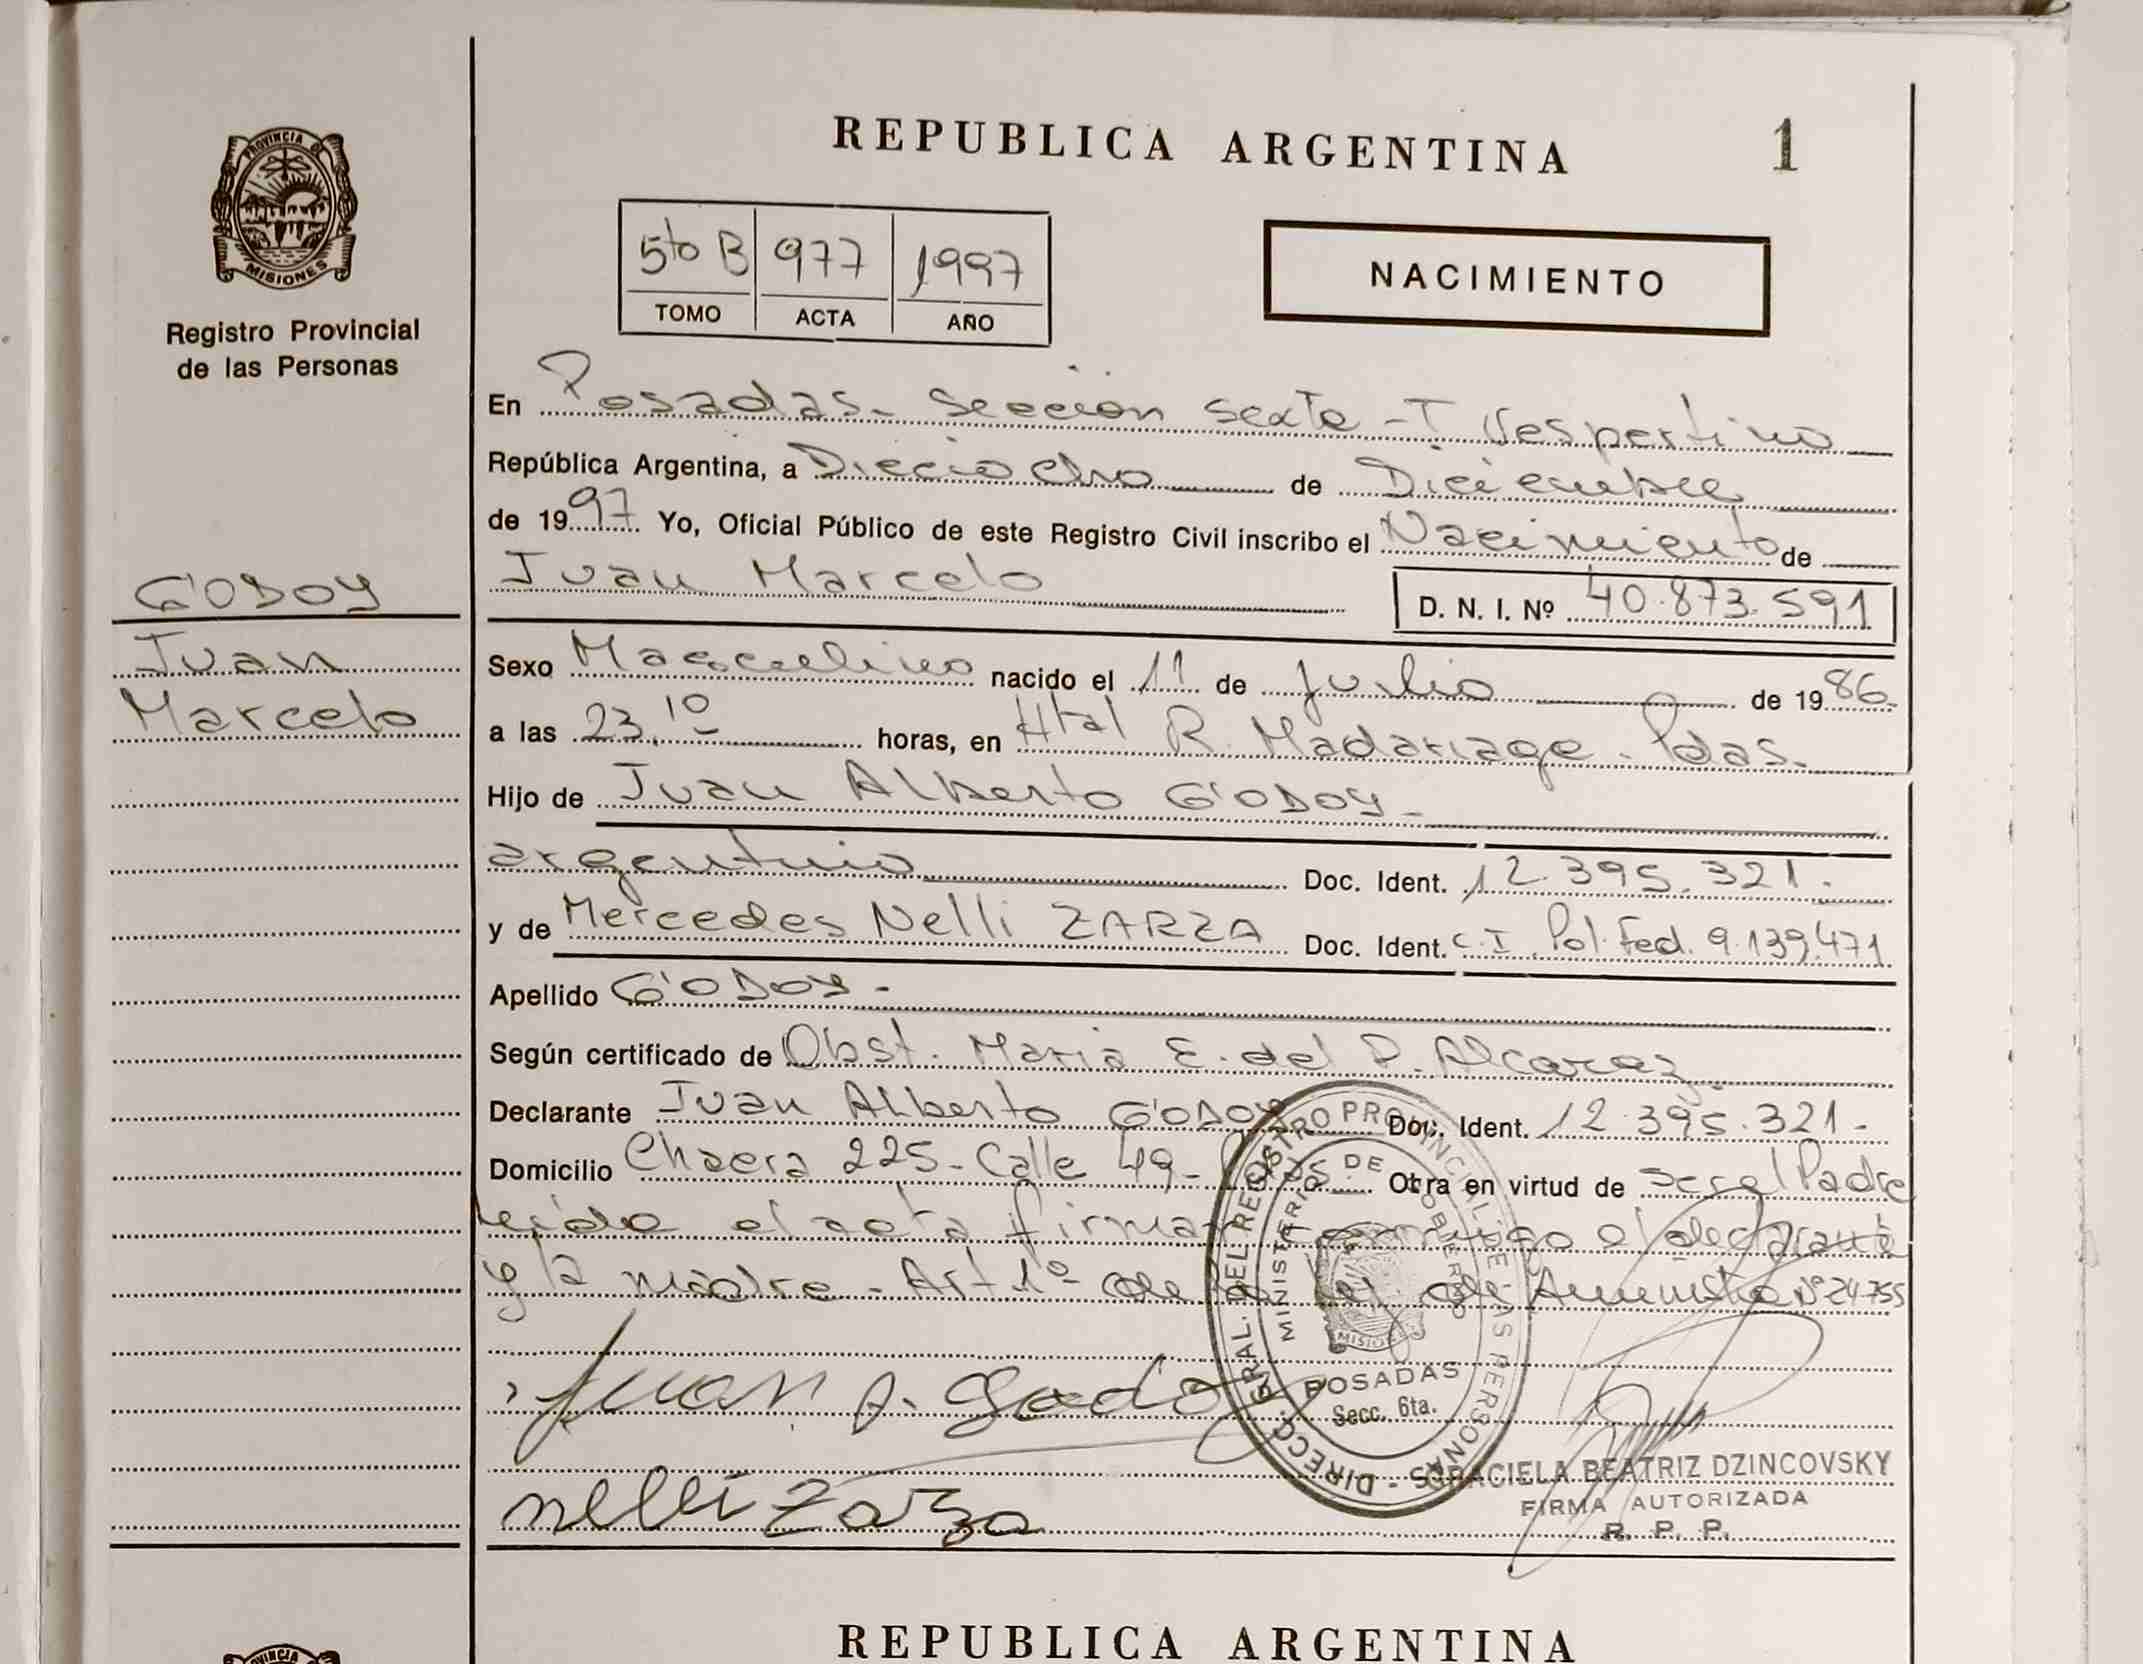 REPUBLICA ARGENTINA
1
PROVINCIA DE
MISIONES
Registro Provincial
de las Personas
5to B 977 1997
TOMO ACTA AÑO
NACIMIENTO
En Posadas - Sección Sexta - T. Vespertino
República Argentina, a Dieciocho de Diciembre
de 1997 Yo, Oficial Público de este Registro Civil inscribo el Nacimiento de
Juan Marcelo D. N. I. Nº 40.873.591
GODOY
Juan
Marcelo
Sexo Masculino nacido el 11 de Julio de 1986.
a las 23,10 horas, en Htal R. Madariaga - Pdas.
Hijo de Juan Alberto GODOY -
argentino Doc. Ident. 12.395.321.
y de Mercedes Nelli ZARZA Doc. Ident. C.I. Pol. Fed. 9.139.471
Apellido GODOY -
Según certificado de Obst. Maria E. del P. Alcaraz.
Declarante Juan Alberto GODOY Doc. Ident. 12.395.321.-
Domicilio Chacra 225 - Calle 49 - Obra en virtud de ser el Padre
leida el acta firman conmigo el declarante
y la madre - Art 1º de la Ley de Amnistia Nº 24755
Juan A. Godoy
Nelli Zarza
DIRECC. GRAL. DEL REGISTRO PROVINCIAL DE LAS PERSONAS
MINISTERIO DE GOBIERNO
MISIONES
POSADAS
Secc. 6ta.
GRACIELA BEATRIZ DZINCOVSKY
FIRMA AUTORIZADA
R. P. P.
REPUBLICA ARGENTINA